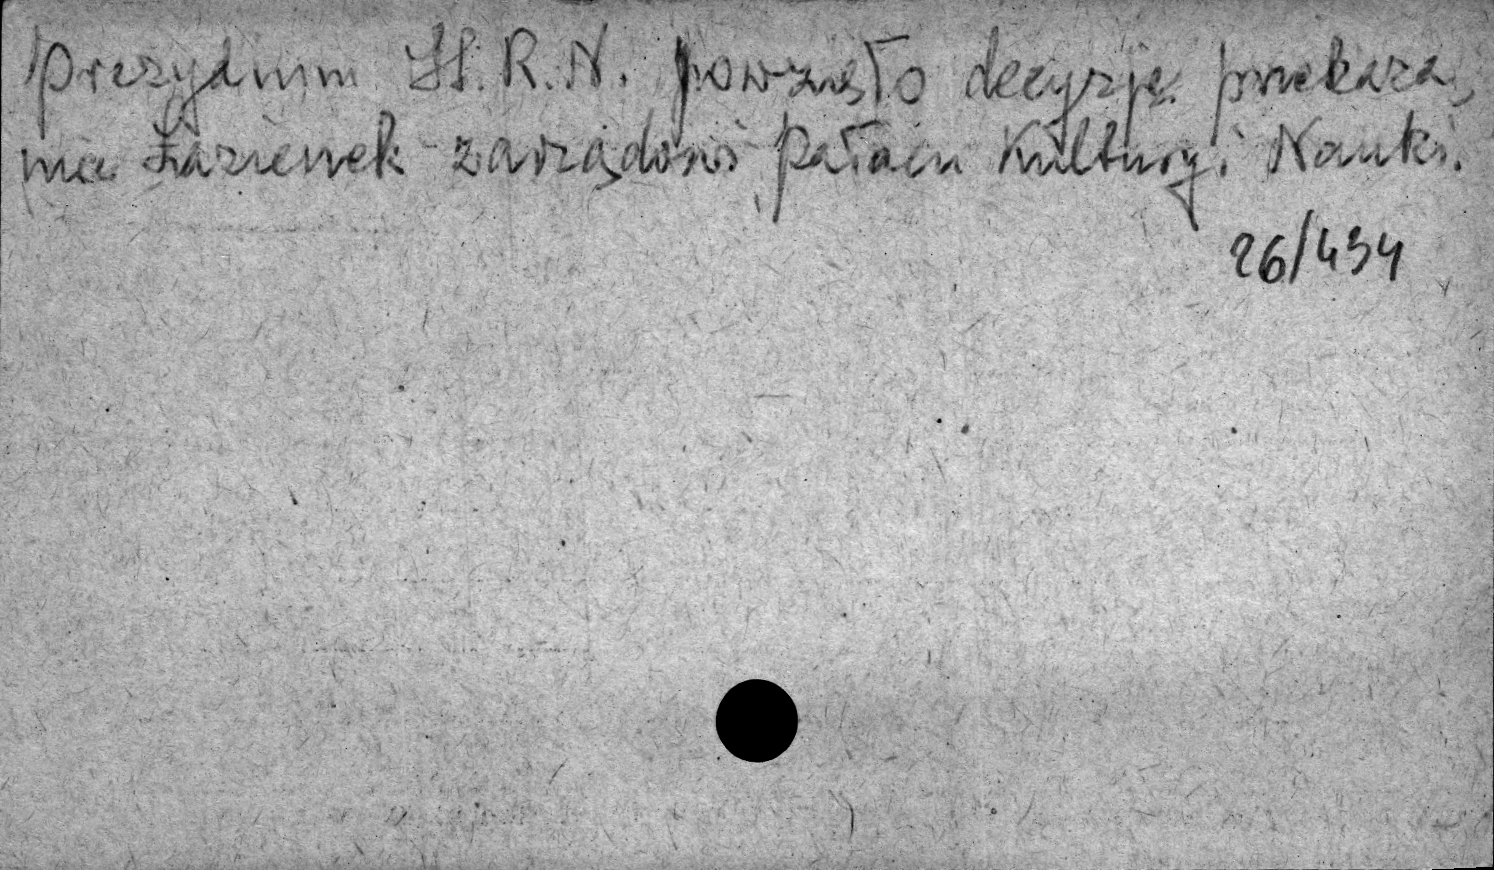 Prezydium St. R.N. powzięło decyzję przekaza,
nia Łazienek zarządowi Pałacu Kultury i Nauki.
26/434